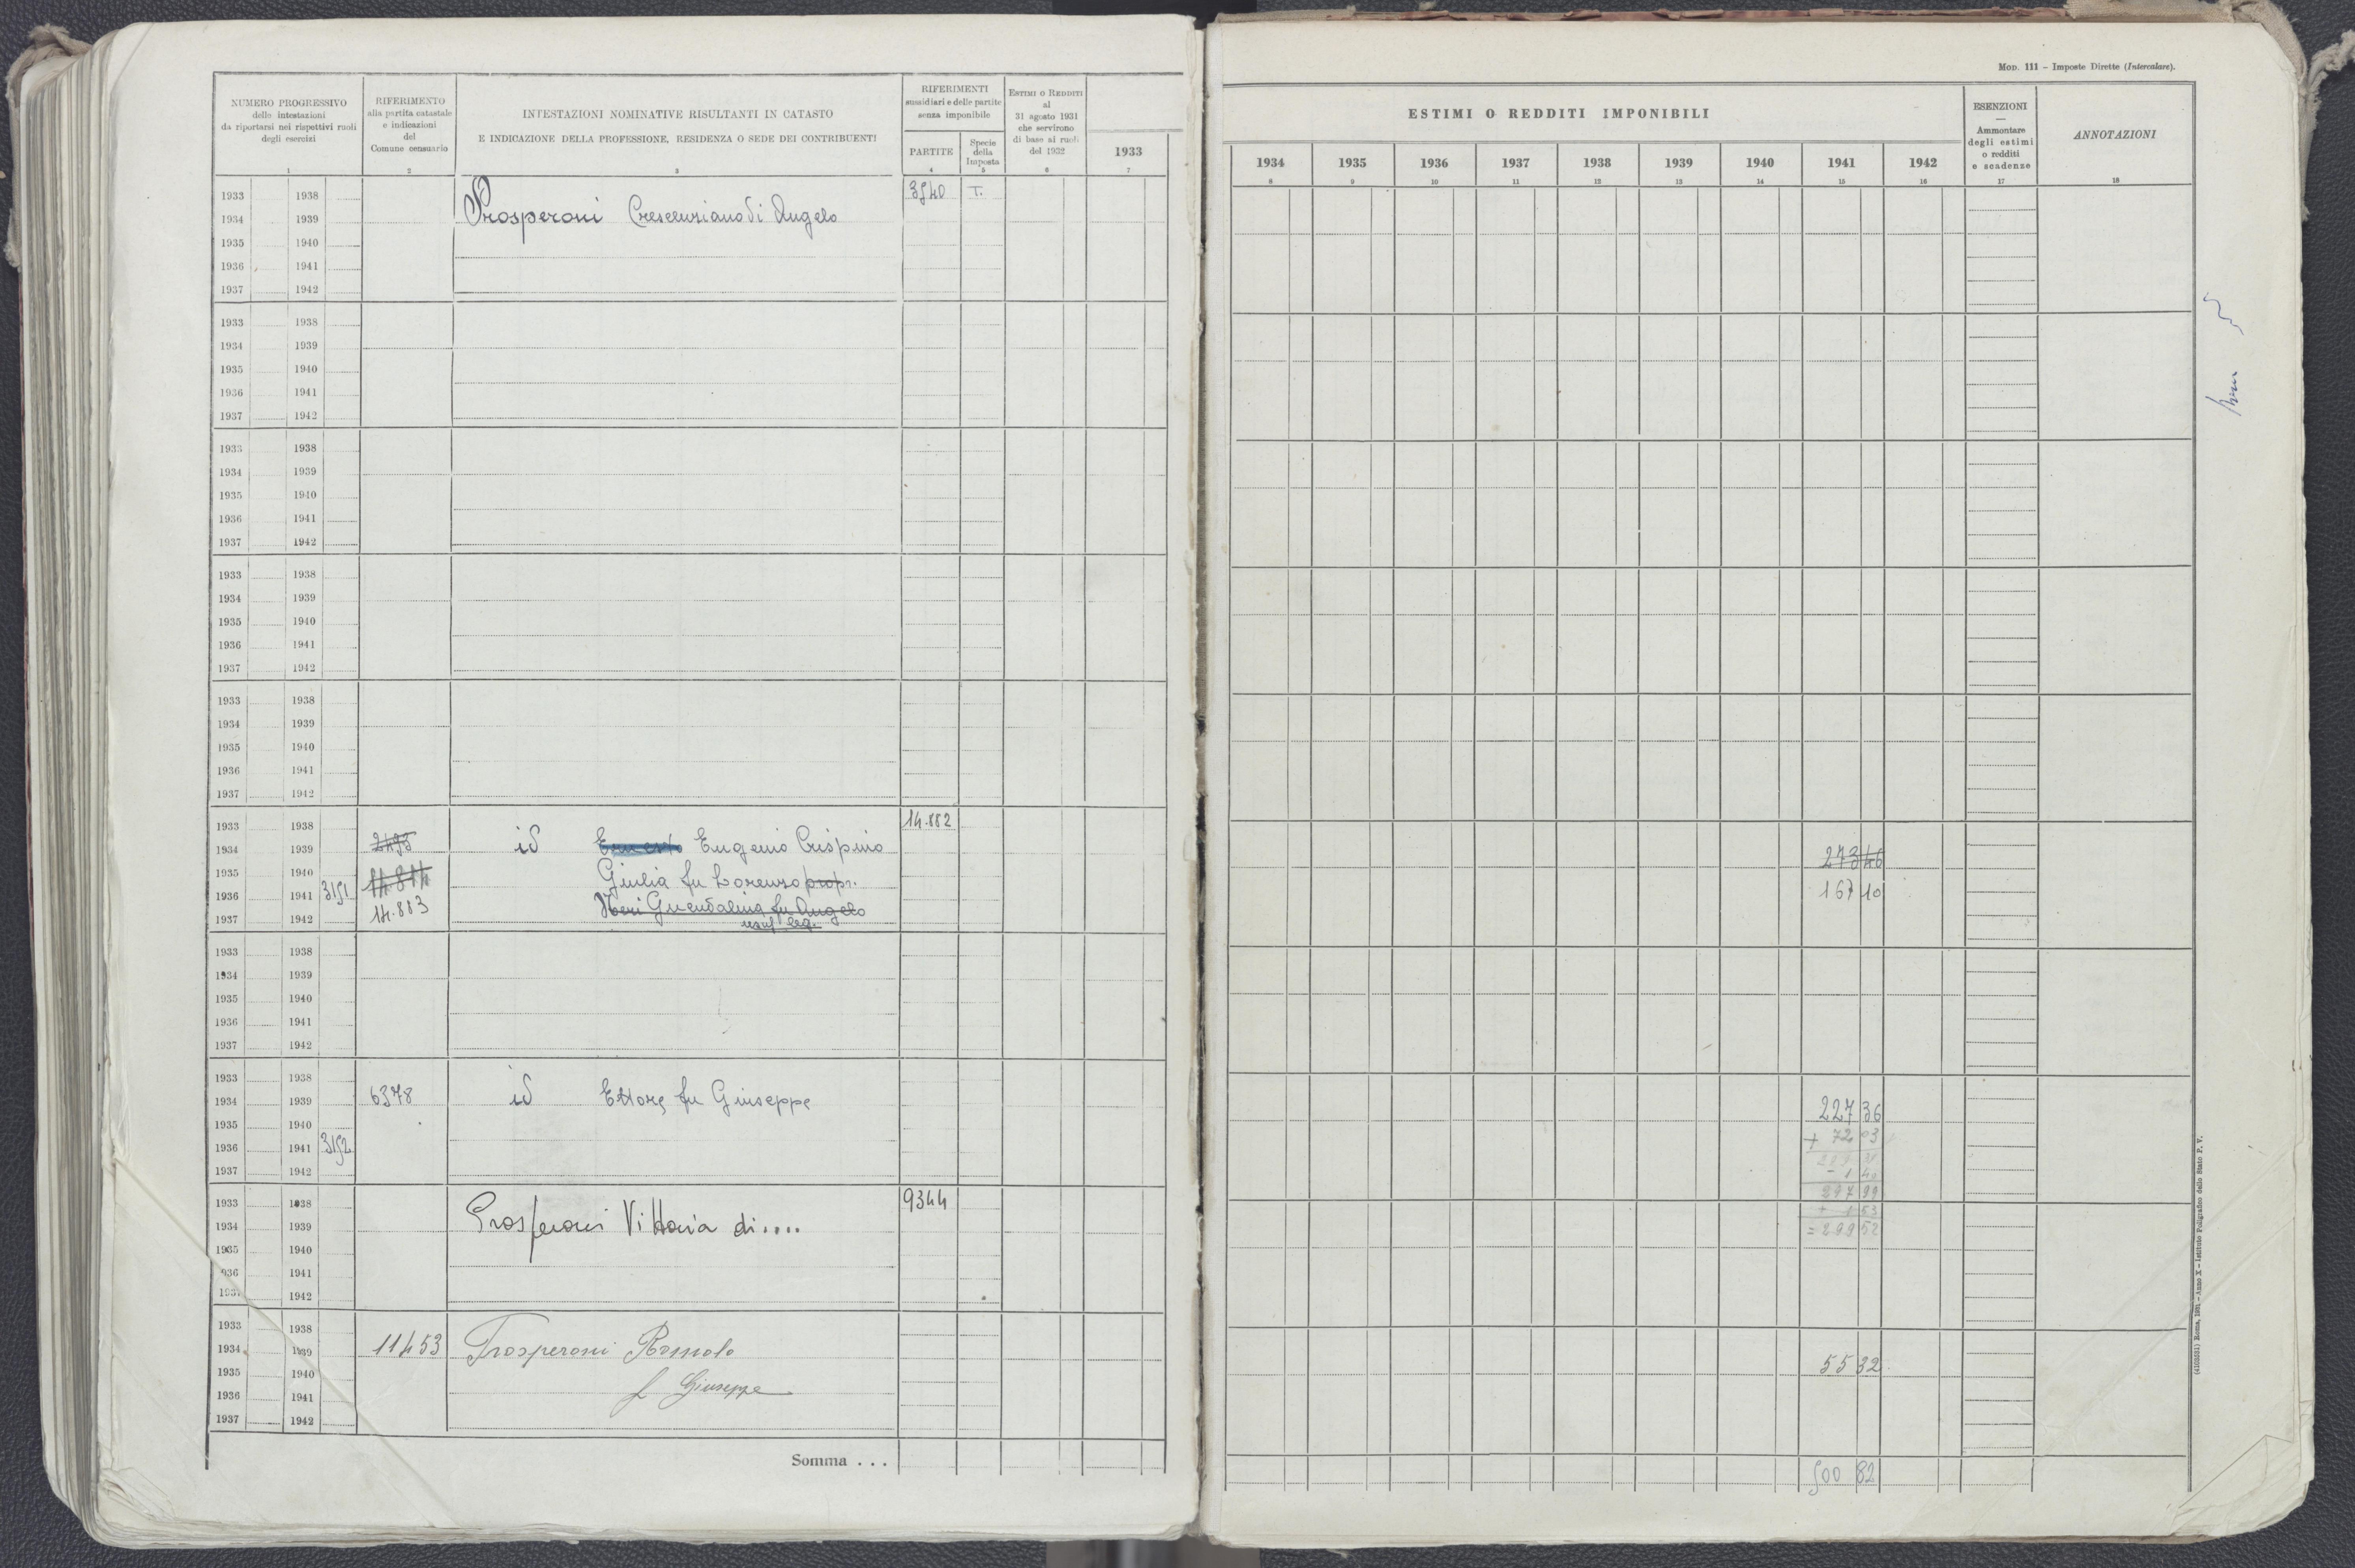 NUMERO PROGRESSIVO
delle intestazioni
da riportarsi nei rispettivi ruoli
degli esercizi
1
RIFERIMENTO
alla partita catastale
e indicazioni
del
Comune censuario
2
INTESTAZIONI NOMINATIVE RISULTANTI IN CATASTO
E INDICAZIONE DELLA PROFESSIONE, RESIDENZA O SEDE DEI CONTRIBUENTI
3
RIFERIMENTI
sussidiari e delle partite
senza imponibile
PARTITE
4
Specie
della
Imposta
5
ESTIMI O REDDITI
al
31 agosto 1931
che servirono
di base ai ruoli
del 1932
6
1933
7
1933 1938 3540 T.
1934 1939 Prosperoni Crescenziano di Angelo
1935 1940
1936 1941
1937 1942
1933 1938
1934 1939
1935 1940
1936 1941
1937 1942
1933 1938
1934 1939
1935 1940
1936 1941
1937 1942
1933 1938
1934 1939
1935 1940
1936 1941
1937 1942
1933 1938
1934 1939
1935 1940
1936 1941
1937 1942
1933 1938 14.882
1934 1939 2493 id Ernesto Eugenio Crispino
1935 1940 14.814 Giulia fu Lorenzo propr.
1936 1941 3151 14.883 Neri Guendalina fu Angelo
1937 1942 usuf. leg.
1933 1938
1934 1939
1935 1940
1936 1941
1937 1942
1933 1938
1934 1939 6378 id Ettore fu Giuseppe
1935 1940
1936 1941 3152
1937 1942
1933 1938 9344
1934 1939 Prosperoni Vittoria di....
1935 1940
1936 1941
1937 1942
1933 1938
1934 1939 11453 Prosperoni Romolo
1935 1940
1936 1941 f Giuseppe
1937 1942
Somma . . .
MOD. 111 – Imposte Dirette (Intercalare).
ESTIMI O REDDITI IMPONIBILI
1934 1935 1936 1937 1938 1939 1940 1941 1942
8 9 10 11 12 13 14 15 16
ESENZIONI
—
Ammontare
degli estimi
o redditi
e scadenze
17
ANNOTAZIONI
18
273 46
167 10
227 36
+ 72 03
- 1 40
297 99
+ 1 53
= 299 52
55 32
500 82
(4103581) Roma, 1932 – Anno X – Istituto Poligrafico dello Stato P. V.